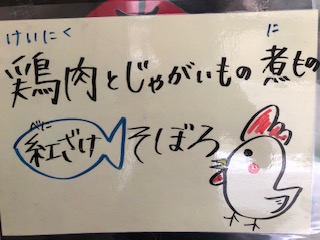 けいにく に
鶏肉とじゃがいもの煮もの
べに
紅ざけそぼろ